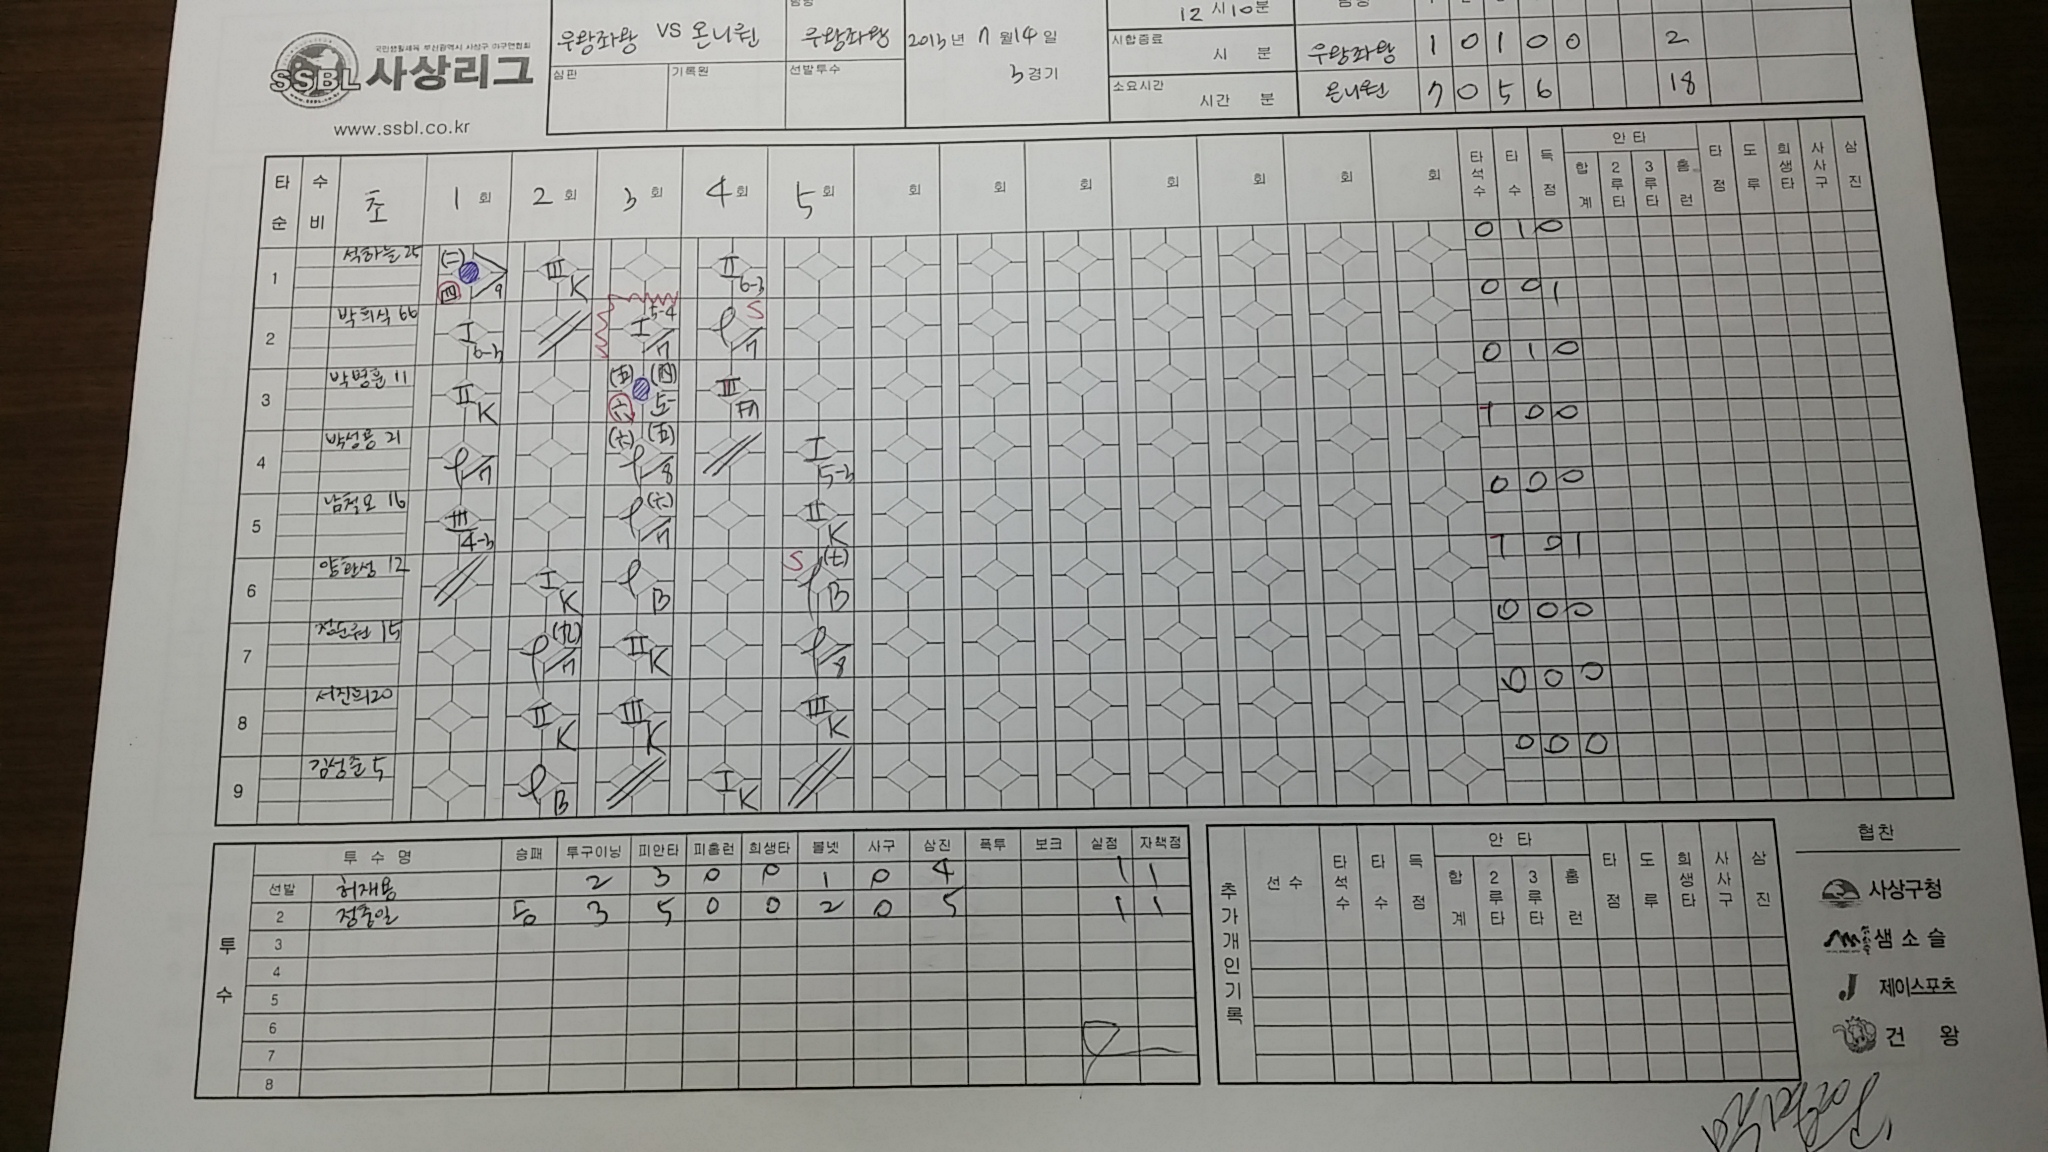 12 시 10 분
우왕좌왕 VS 온니원
우왕좌왕
2013 년 7 월 14 일
3 경기
심판
기록원
선발투수
시합종료
시 분
소요시간
시간 분
우왕좌왕 1 0 1 0 0 2
온니원 7 0 5 6 18
국민생활체육 부산광역시 사상구 야구연합회
SSBL 사상리그
www.ssbl.co.kr
타순 수비 초 1 회 2 회 3 회 4 회 5 회 회 회 회 회 회 회 회 타석수 타수 득점 안타 합계 2루타 3루타 홈런 타점 도루 희생타 사사구 삼진
1 석하늘 25 (二) 四 9 III K II 6-3 0 1 0
2 박희식 66 I 6-3 I 5-4 7 S 7 0 0 1
3 박병훈 11 II K (五) (四) (六) 도 III F7 0 1 0
4 박성용 21 7 (六) (五) 8 I 5-3 1 0 0
5 남철모 16 III 4-3 (六) 7 II K 0 0 0
6 양환성 12 I K B S (七) B 1 0 1
7 정순원 15 (九) 7 II K 8 0 0 0
8 서진희 20 II K III K III K 0 0 0
9 김성준 5 B I K 0 0 0
투수
투수명 승패 투구이닝 피안타 피홈런 희생타 볼넷 사구 삼진 폭투 보크 실점 자책점
선발 허재용 2 3 0 0 1 0 4 1 1
2 정종일 3 5 0 0 2 0 5 1 1
3
4
5
6
7
8
추가개인기록
선수 타석수 타수 득점 안타 합계 2루타 3루타 홈런 타점 도루 희생타 사사구 삼진
협찬
사상구청
샘소슬
제이스포츠
건왕